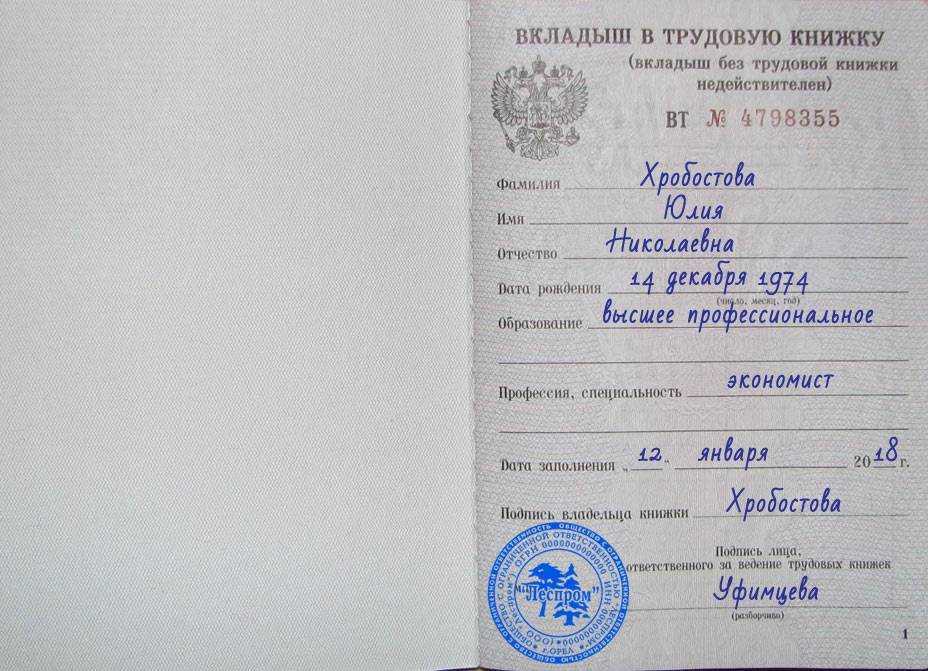 ВКЛАДЫШ В ТРУДОВУЮ КНИЖКУ
(вкладыш без трудовой книжки
недействителен)
ВТ № 4798355
Фамилия Хробостова
Имя Юлия
Отчество Николаевна
Дата рождения 14 декабря 1974
(число, месяц, год)
Образование высшее профессиональное
Профессия, специальность экономист
Дата заполнения „12“ января 2018 г.
Подпись владельца книжки Хробостова
Подпись лица,
ответственного за ведение трудовых книжек
Уфимцева
(разборчиво)
"Леспром"
г.ОРЕЛ
1